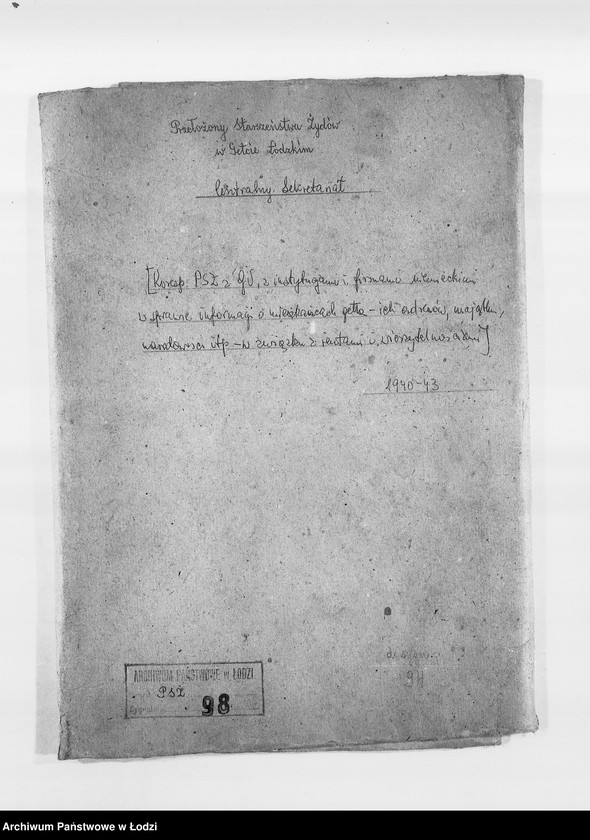 Przełożony Starszeństwa Żydów
w Getcie Łodzkim
Centralny Sekretariat
[Koresp. PSŻ z GV, z instytucjami i firmami niemieckimi
w sprawie informacji o mieszkańcach getta – ich adresów, majątku,
narodowości itp – w związku z rentami i wierzytelnościami]
1940-43
ARCHIWUM PAŃSTWOWE w ŁODZI
PSŻ
98
Archiwum Państwowe w Łodzi